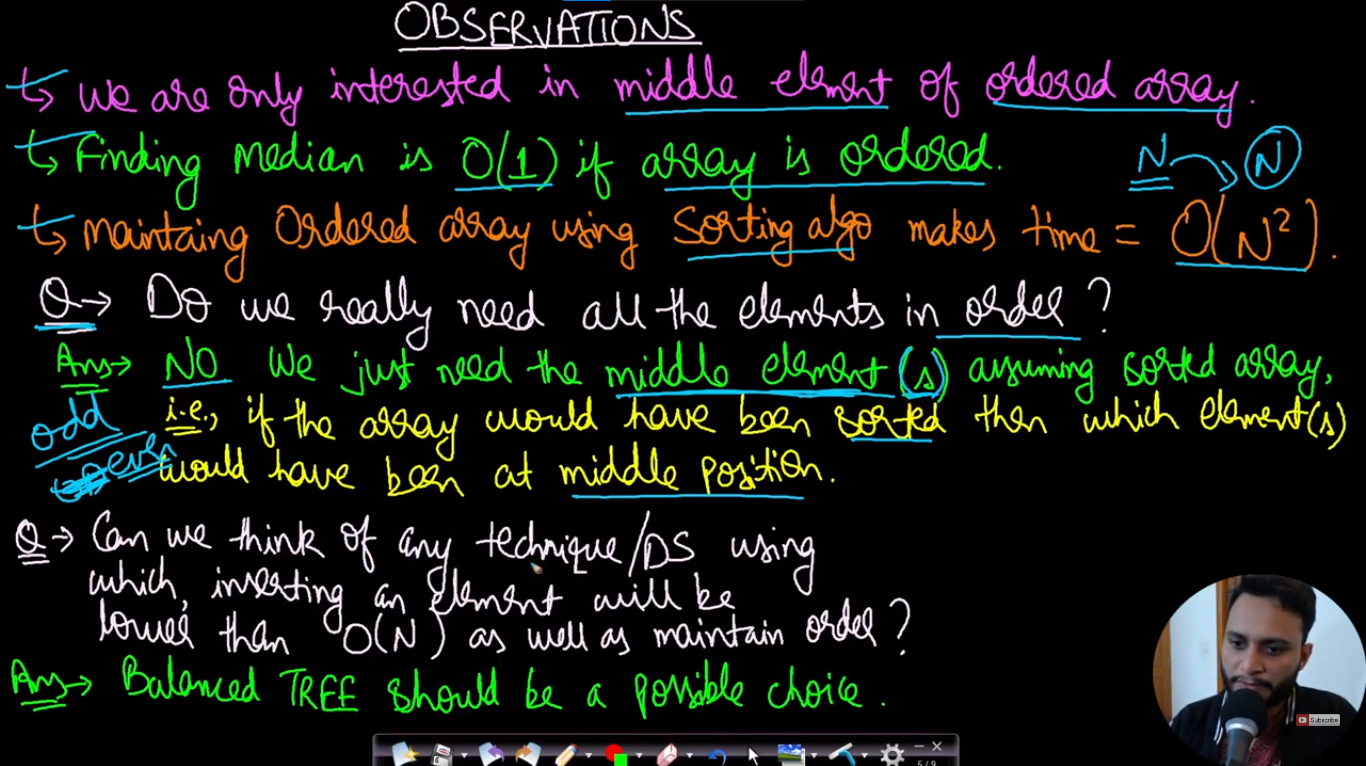 OBSERVATIONS
↳ We are only interested in middle elment of ordered array.
↳ Finding Median is O(1) if array is ordered. N → N
↳ Maintaing Ordered array using Sorting algo makes time = O(N²).
Q→ Do we really need all the elements in order?
Ans→ NO We just need the middle element(s) assuming sorted array,
odd i.e., if the array would have been sorted then which element(s)
even would have been at middle position.
Q→ Can we think of any technique/DS using
which, inserting an element will be
lower than O(N) as well as maintain order?
Ans→ Balanced TREE should be a possible choice.
Subscribe
5/9